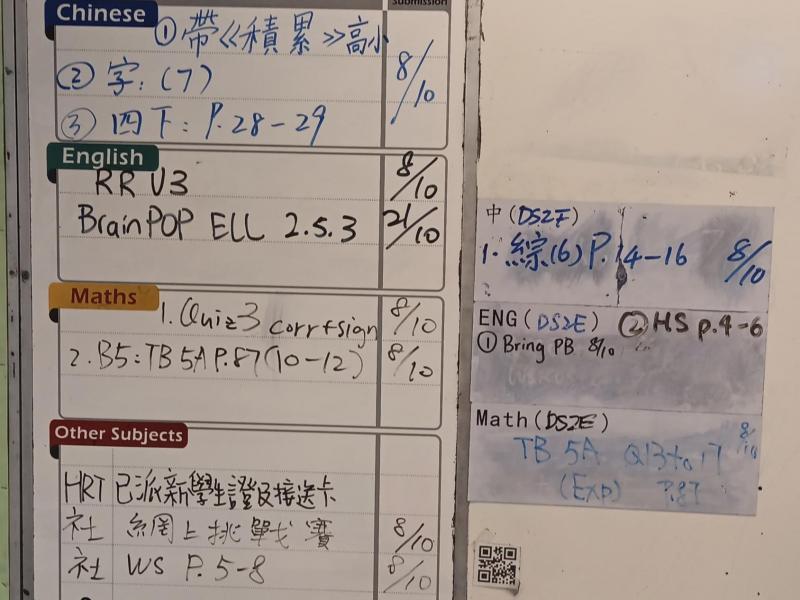 Submission
Chinese
① 帶《積累》高小 8/10
② 字:(7)
③ 四下: P.28-29
English
RR U3 8/10
BrainPOP ELL 2.5.3 21/10
Maths
1. Quiz 3 corr+sign 8/10
2. B5: TB 5A P.87 (10-12) 8/10
Other Subjects
HRT 已派新學生證及接送卡
社 網上挑戰賽 8/10
社 WS P.5-8 8/10
中(DS2F)
1. 綜(6) P.14-16 8/10
ENG(DS2E) ② HS p.4-6
① Bring PB 8/10
Math(DS2E)
TB 5A Q13 to 17 8/10
(Exp) P.87